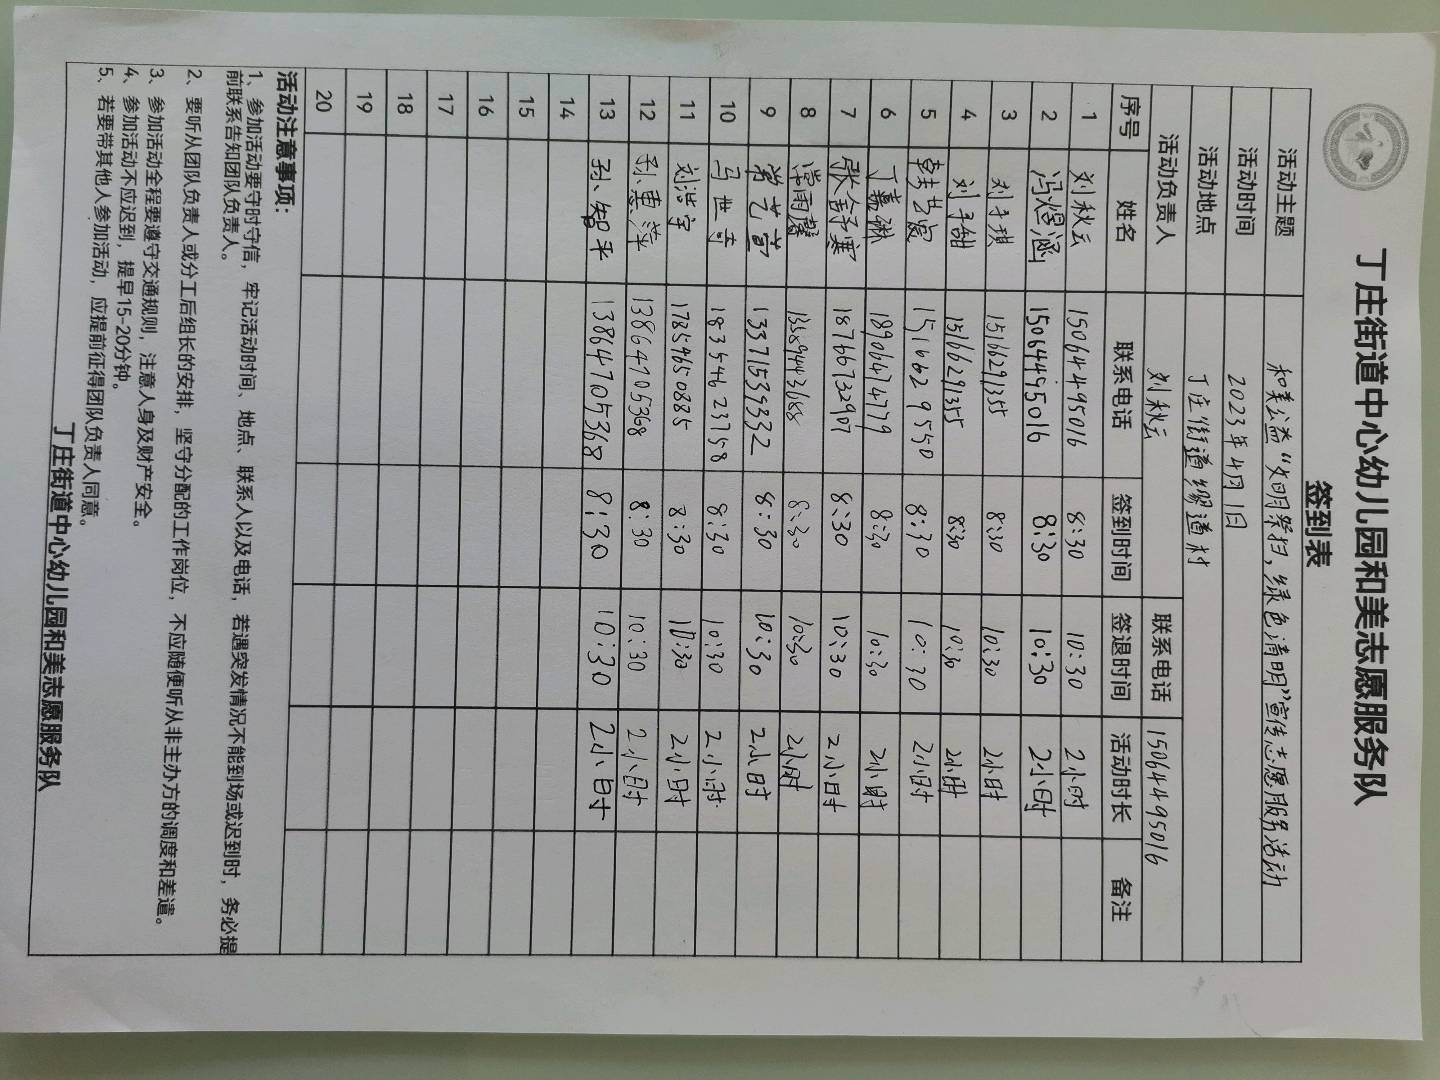 丁庄街道中心幼儿园和美志愿服务队
签到表
活动主题 和美公益“文明祭扫，绿色清明”宣传志愿服务活动
活动时间 2023年4月1日
活动地点 丁庄街道缪道村
活动负责人 刘秋云 联系电话 15064495016
序号 姓名 联系电话 签到时间 签退时间 活动时长 备注
1 刘秋云 15064495016 8:30 10:30 2小时
2 冯煜涵 15064495016 8:30 10:30 2小时
3 刘子琪 15166291355 8:30 10:30 2小时
4 刘子甜 15166291355 8:30 10:30 2小时
5 15166629550 8:30 10:30 2小时
6 丁嘉琳 18906474779 8:30 10:30 2小时
7 张舍予寒 18766732907 8:30 10:30 2小时
8 常雨馨 13589443688 8:30 10:30 2小时
9 常艺苗 13371539332 8:30 10:30 2小时
10 马世奇 18354623758 8:30 10:30 2小时
11 刘浩宇 17854650885 8:30 10:30 2小时
12 孙惠萍 13864705368 8:30 10:30 2小时
13 孙智平 13864705368 8:30 10:30 2小时
14
15
16
17
18
19
20
活动注意事项：
1、参加活动要守时守信，牢记活动时间、地点、联系人以及电话，若遇突发情况不能到场或迟到时，务必提
前联系告知团队负责人。
2、要听从团队负责人或分工后组长的安排，坚守分配的工作岗位，不应随便听从非主办方的调度和差遣。
3、参加活动全程要遵守交通规则，注意人身及财产安全。
4、参加活动不应迟到，提早15-20分钟。
5、若要带其他人参加活动，应提前征得团队负责人同意。
丁庄街道中心幼儿园和美志愿服务队